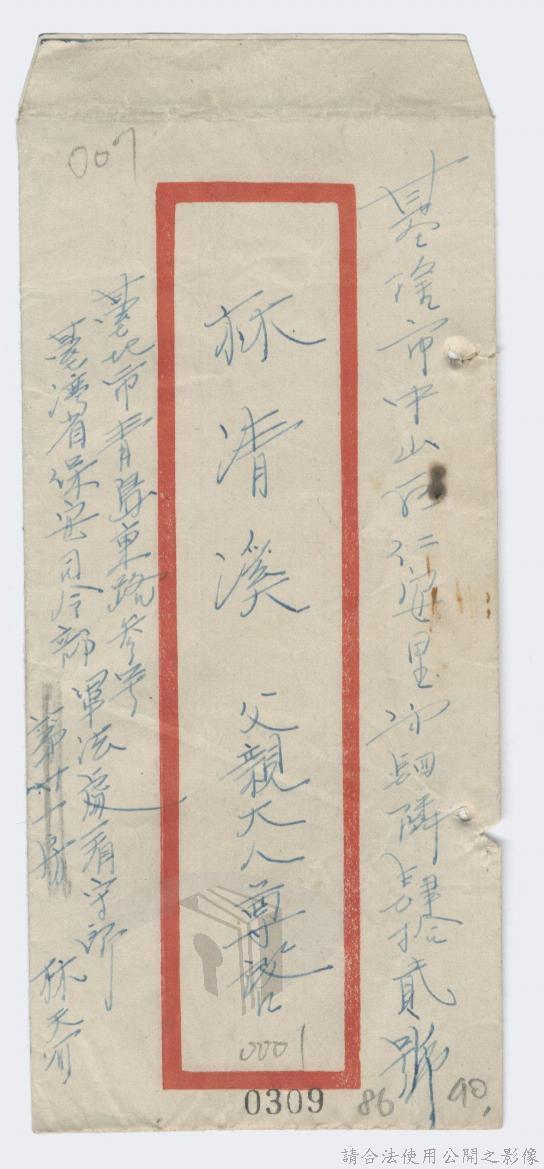 007
基隆市中山区仁安里 隣肆拾貳號
林清溪 父親大人尊啓
臺北市青島東路参号
臺湾省保安司令部 軍法處看守所
第廿一房
林天河
0001
0309
86
40
請合法使用公開之影像